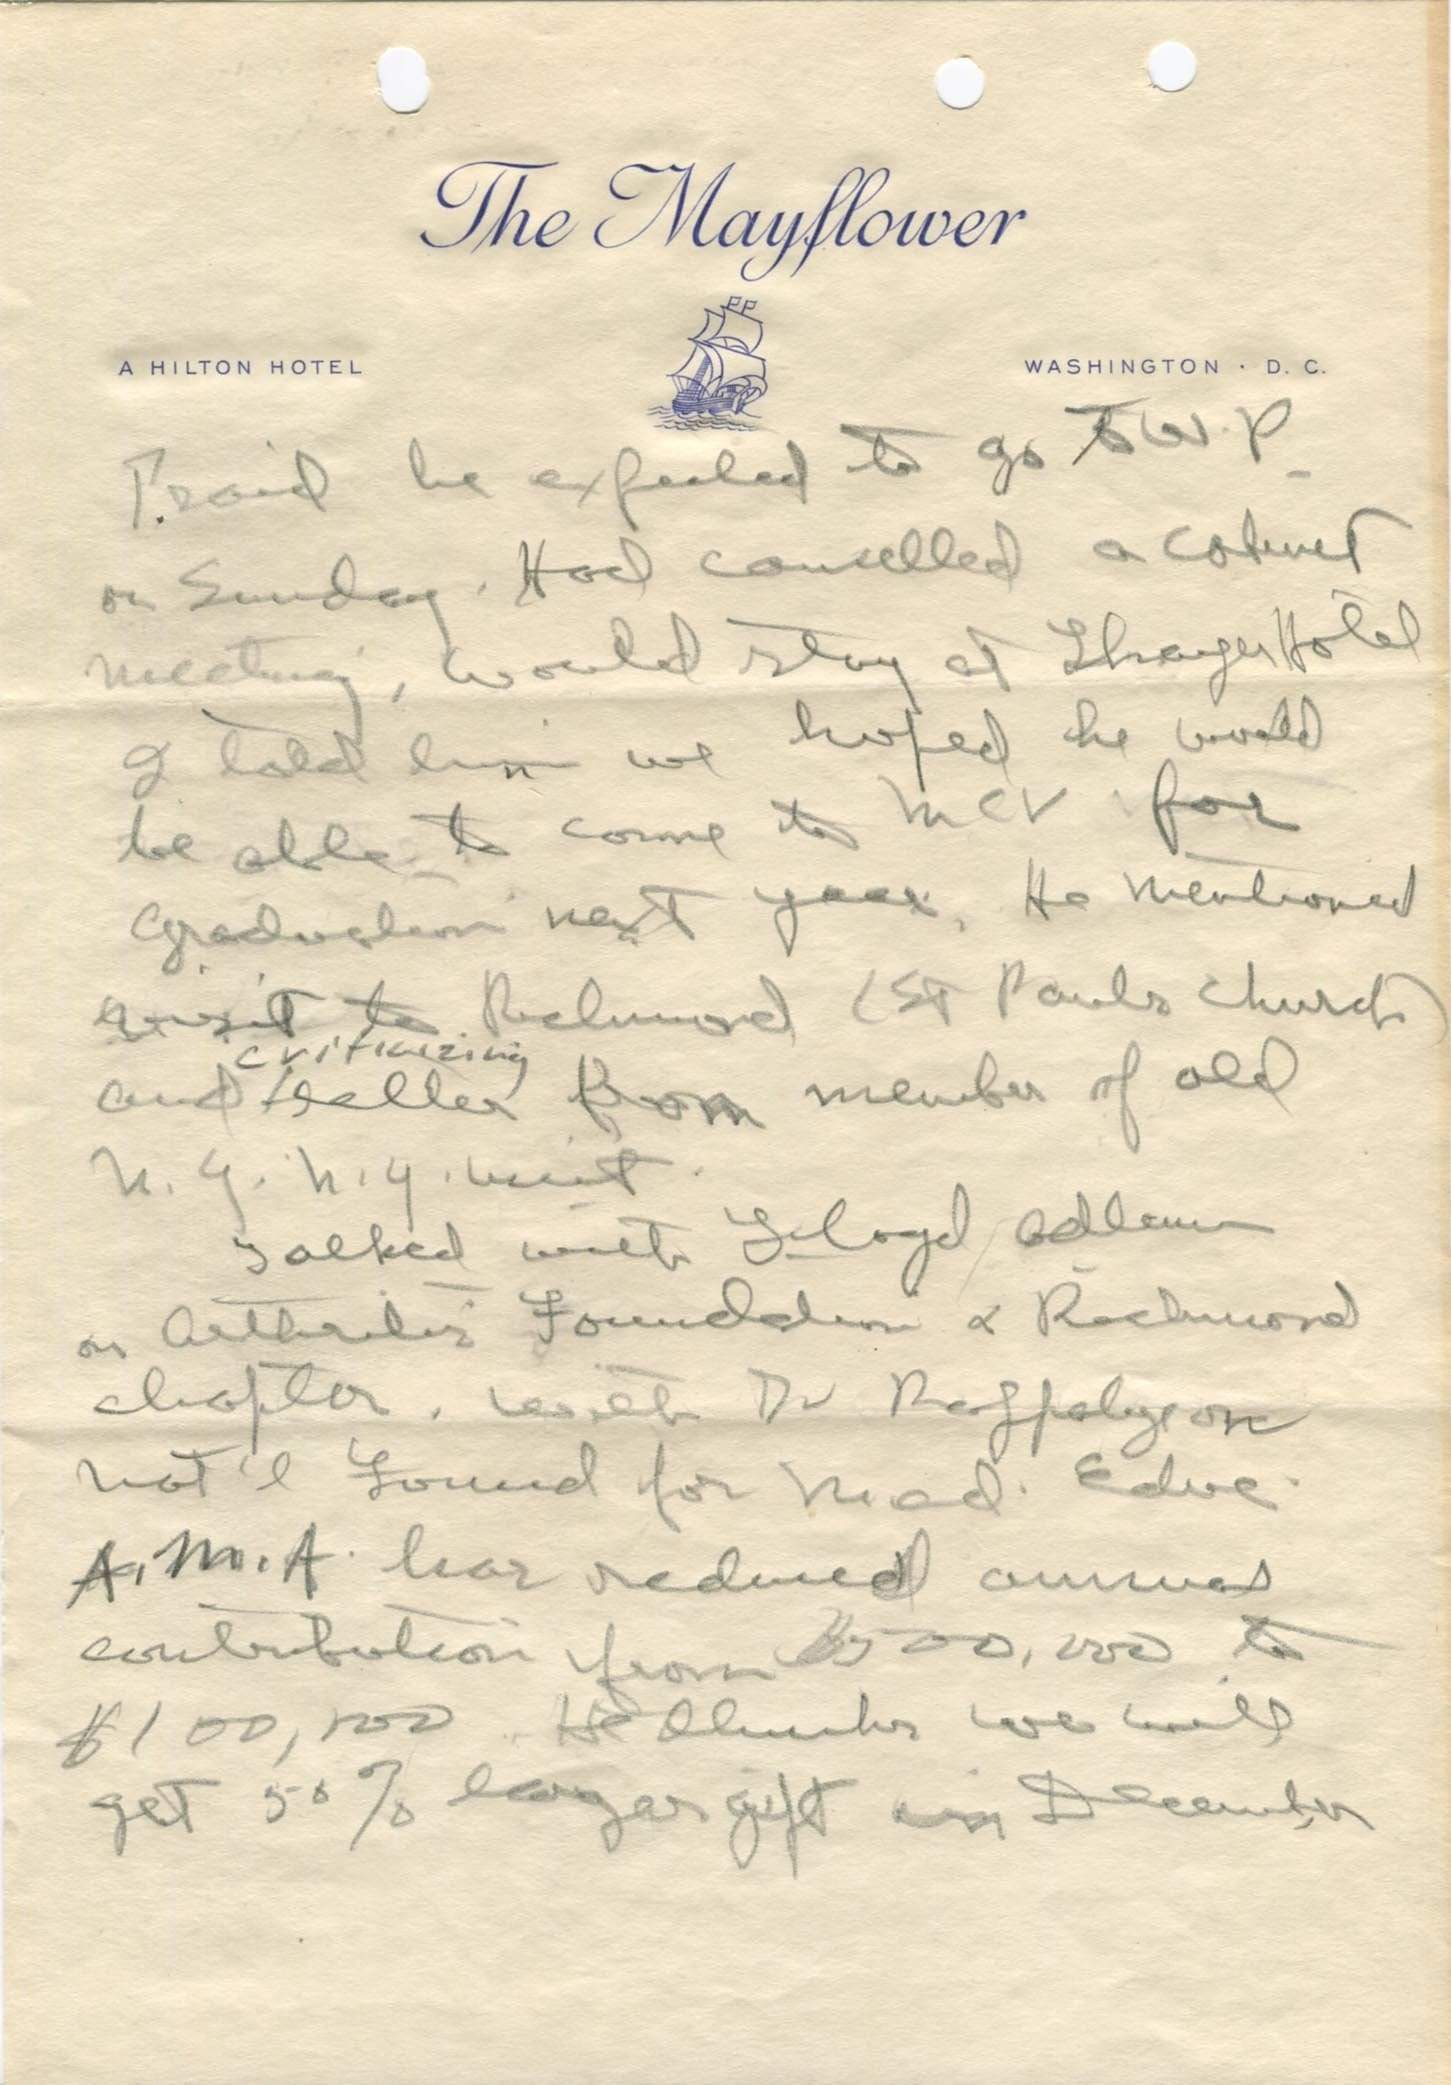 The Mayflower
A HILTON HOTEL
WASHINGTON · D. C.
P. said he expected to go to W. P.
on Sunday. Had cancelled a cabinet
meeting, would stay at Thayer Hotel
I told him we hoped he would
be able to come to MCV for
graduation next year. He mentioned
visit to Richmond (St Pauls Church)
criticizing
and letter from member of old
N. Y. N. Y. unit.
Talked with Floyd Odlum
on Arthritis Foundation & Richmond
chapter. with Dr on
Nat'l Found for Med. Educ.
A. M. A. has reduced annual
contribution from $500,000 to
$100,000. He thinks we will
get 50% larger gift in December